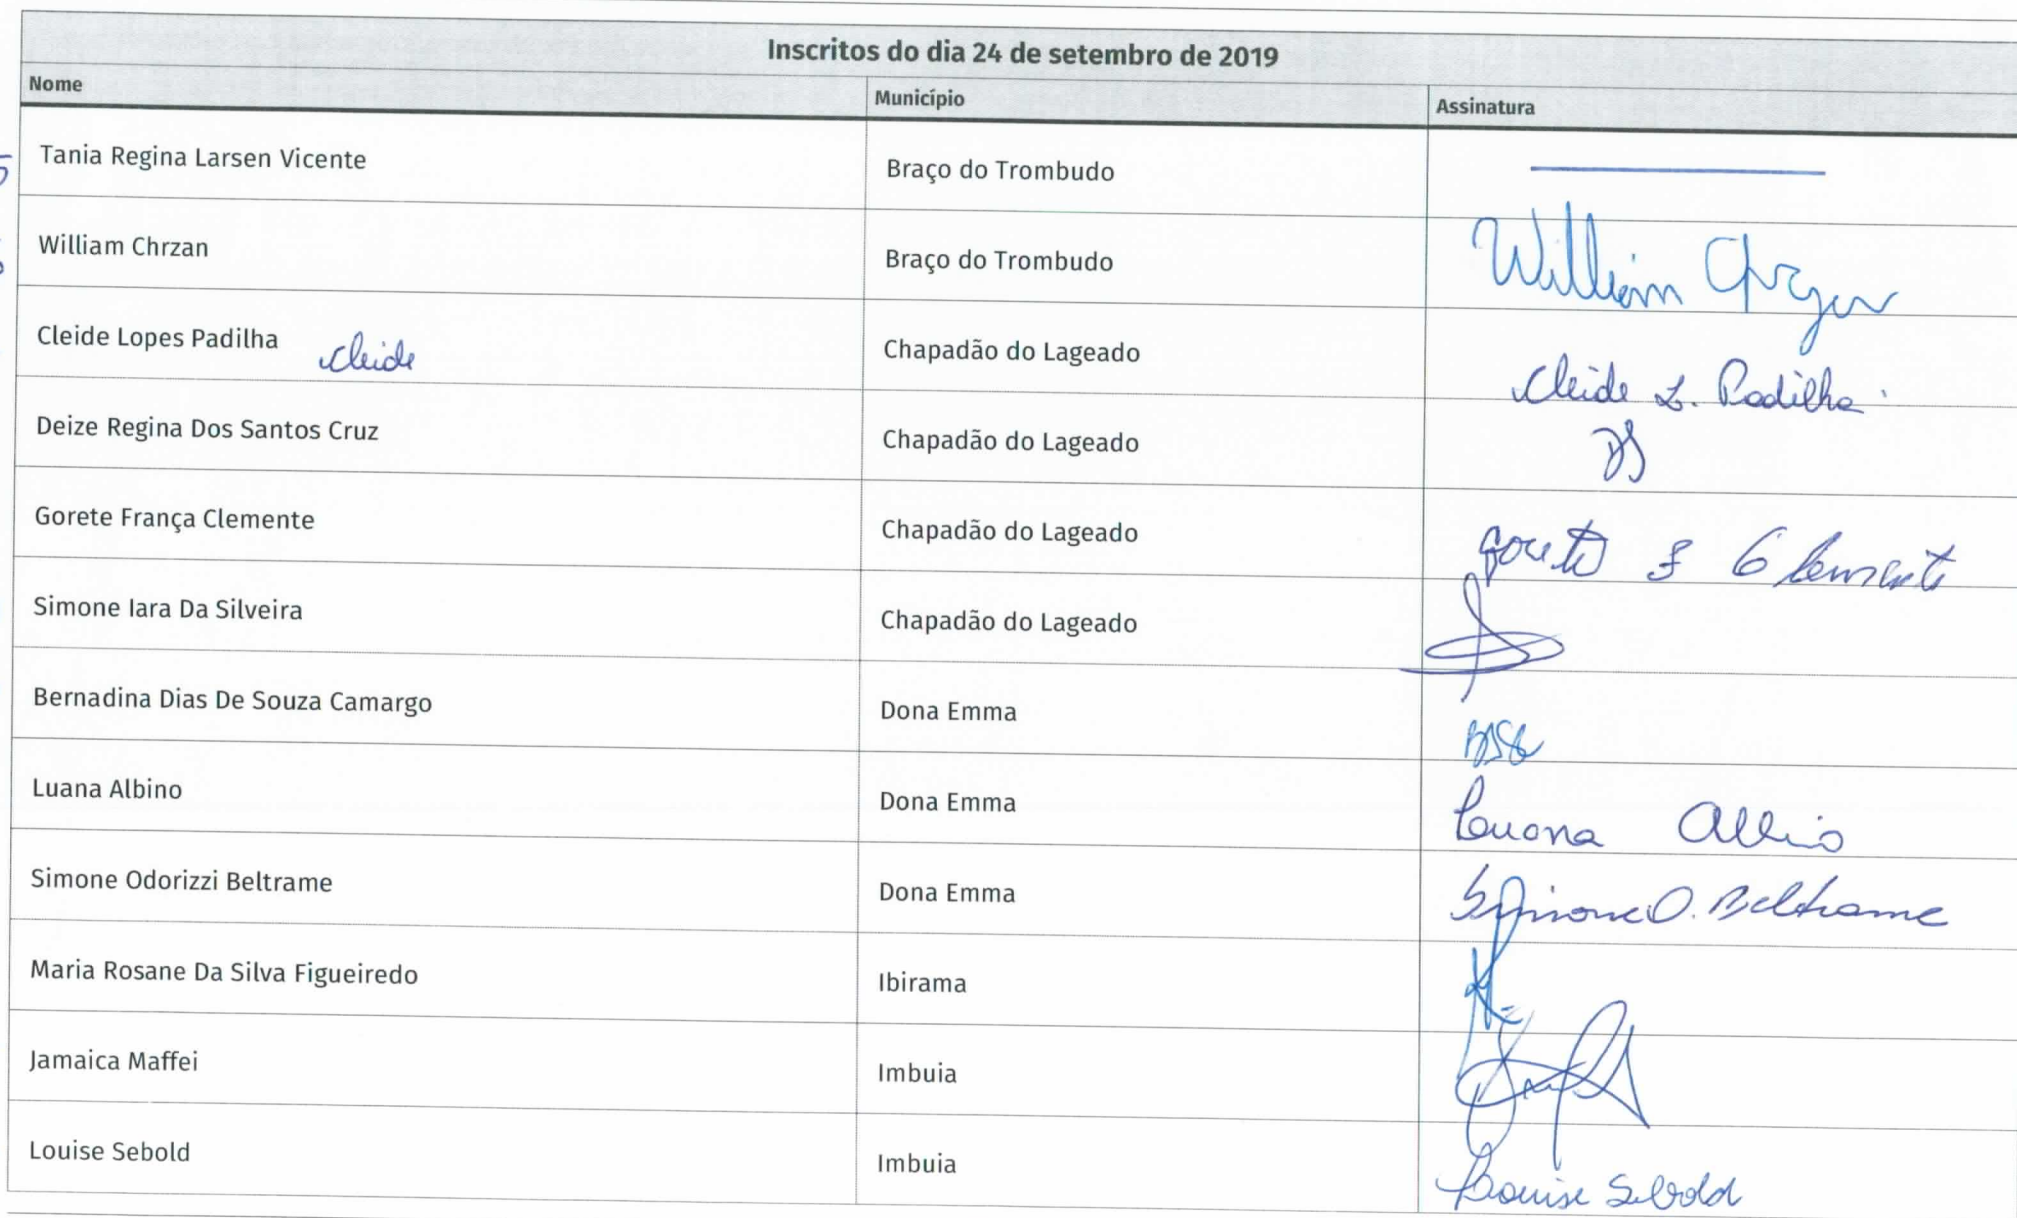 Inscritos do dia 24 de setembro de 2019
Nome Município Assinatura
Tania Regina Larsen Vicente Braço do Trombudo
William Chrzan Braço do Trombudo William Chrzan
Cleide Lopes Padilha Cleide Chapadão do Lageado Cleide L. Padilha
Deize Regina Dos Santos Cruz Chapadão do Lageado
Gorete França Clemente Chapadão do Lageado Gorete F Clemente
Simone Iara Da Silveira Chapadão do Lageado
Bernadina Dias De Souza Camargo Dona Emma
Luana Albino Dona Emma Luana Albino
Simone Odorizzi Beltrame Dona Emma Simone O. Beltrame
Maria Rosane Da Silva Figueiredo Ibirama
Jamaica Maffei Imbuia
Louise Sebold Imbuia Louise Sebold